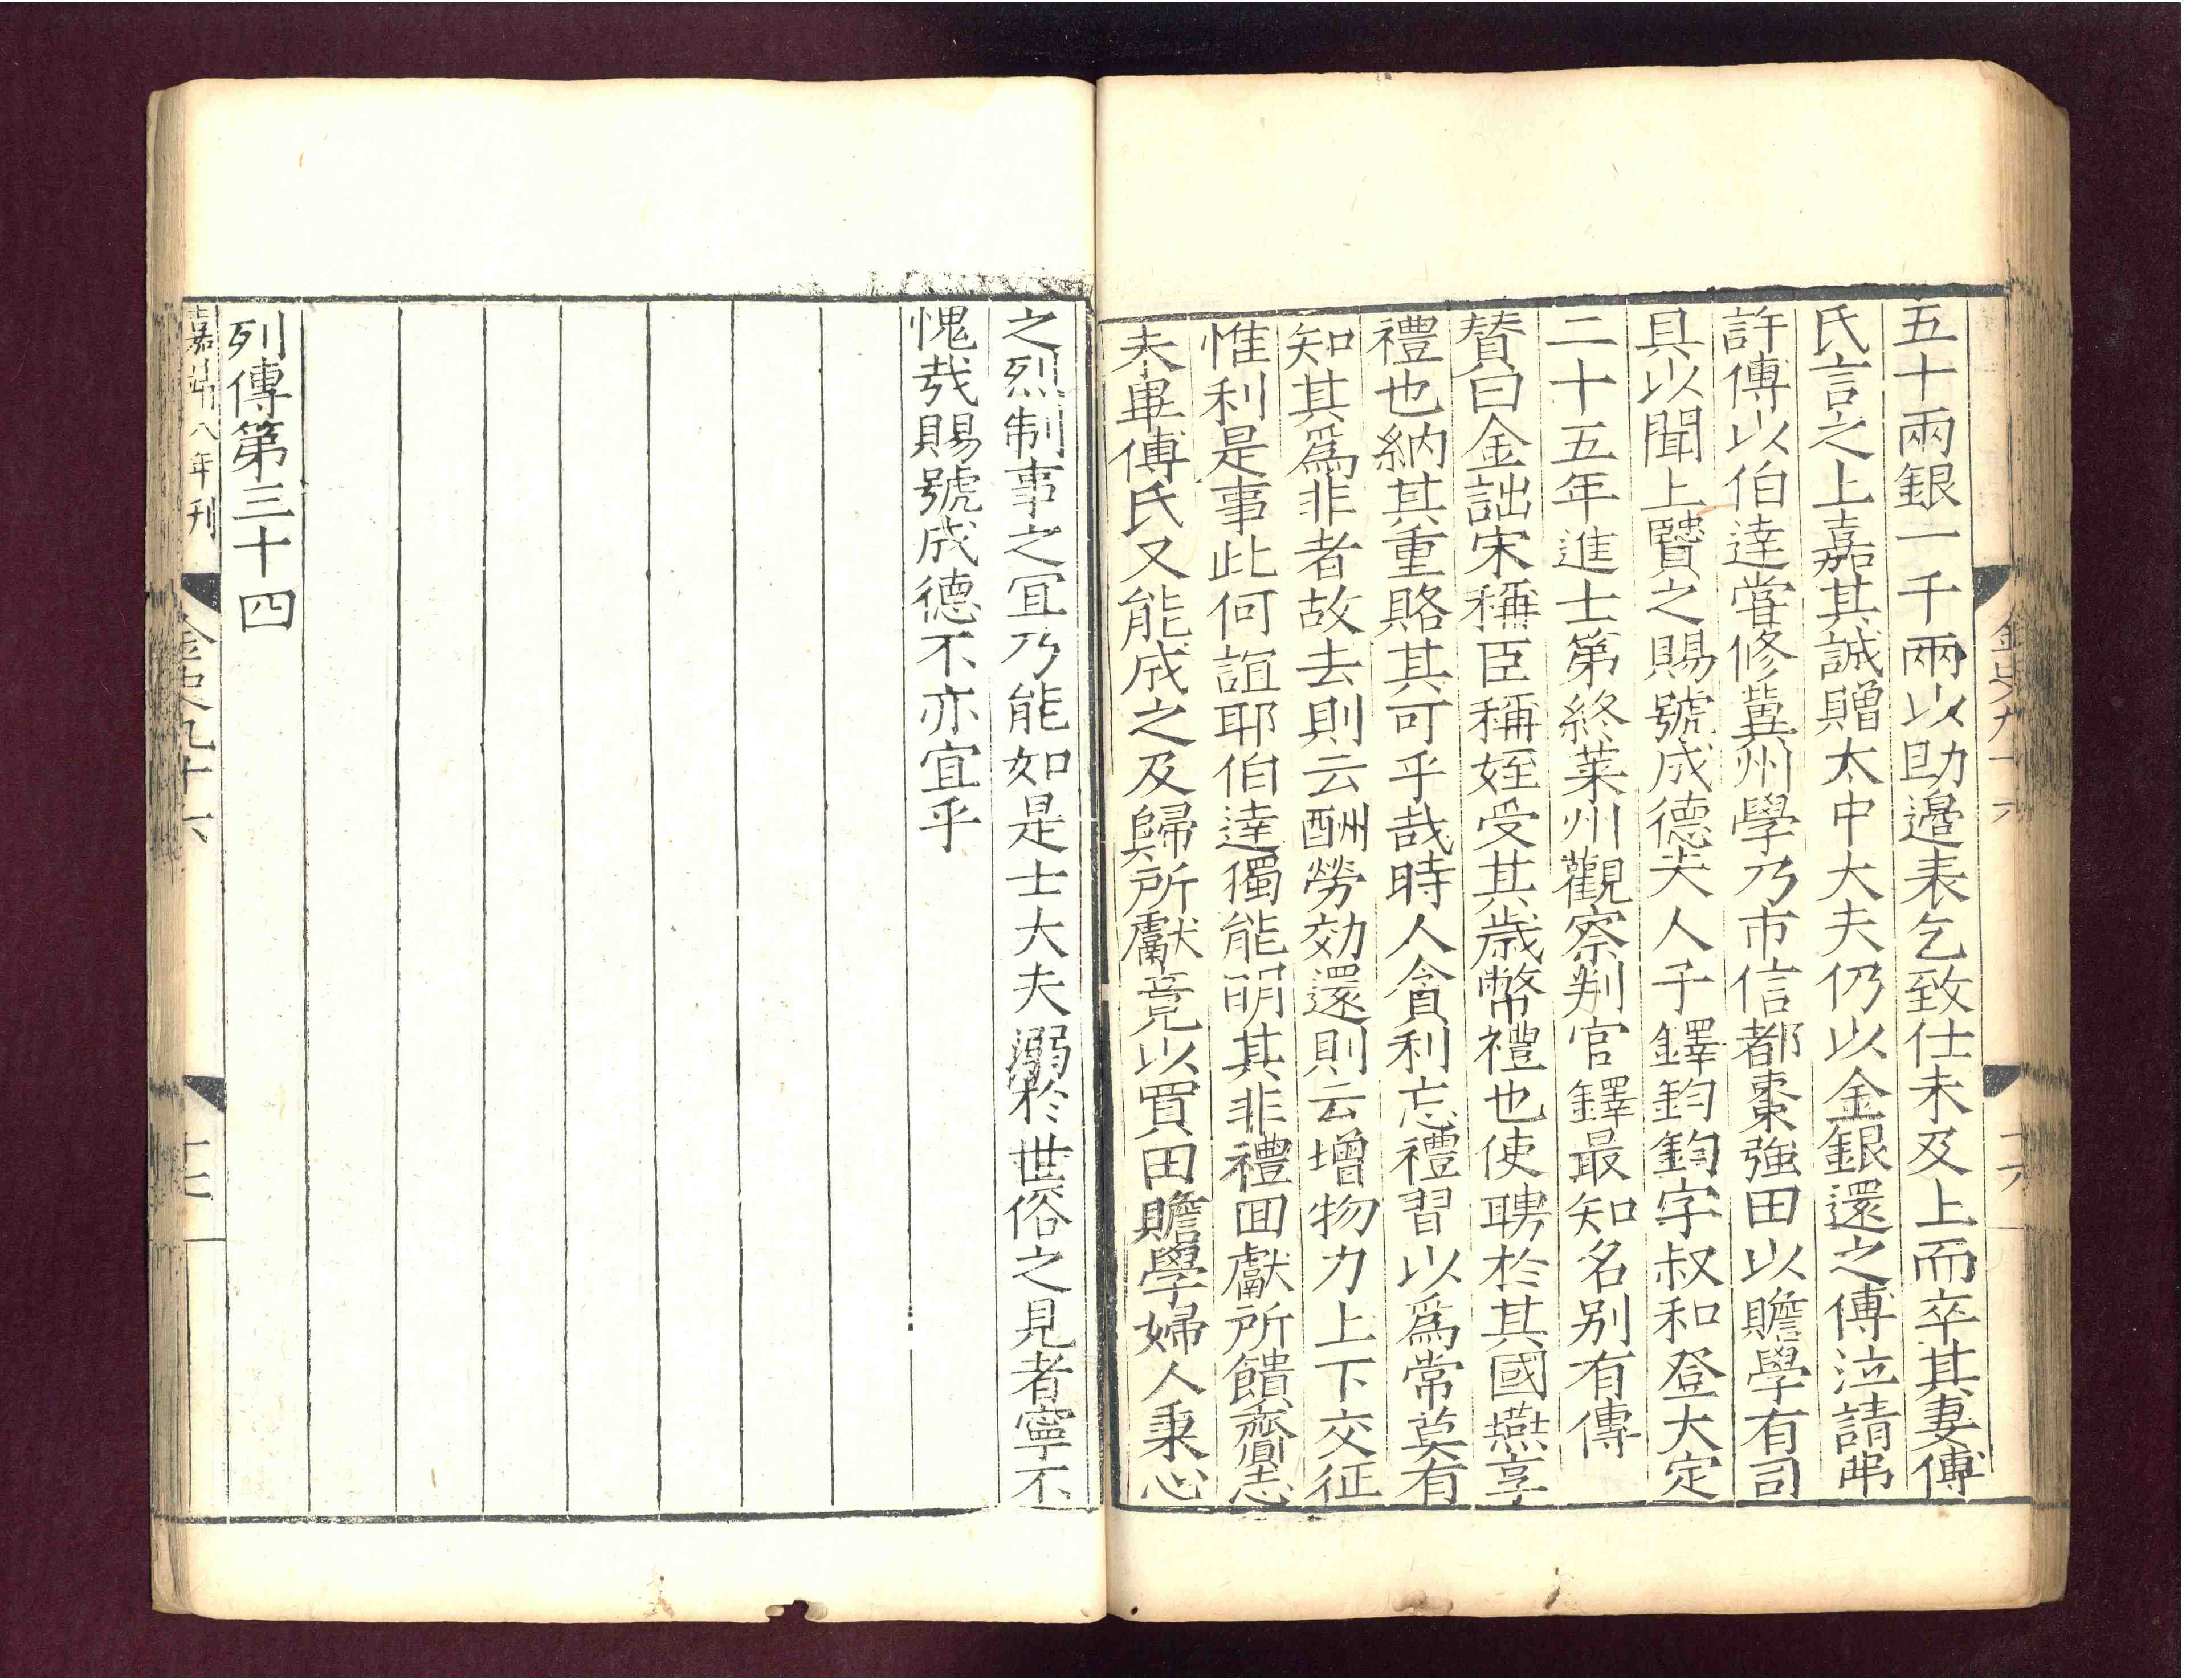 五十兩銀一千兩以助邉表乞致仕未及上而卒其妻傅
氏言之上嘉其誠贈太中大夫仍以金銀還之傅泣請弗
許傅以伯達嘗修冀州學乃市信都棗強田以贍學有司
具以聞上賢之賜號成德夫人子鐸鈞鈞字叔和登大定
二十五年進士第終莱州觀察判官鐸最知名别有傳
賛曰金詘宋稱臣稱姪受其歳幣禮也使聘於其國燕享
禮也納其重賂其可乎哉時人貪利忘禮習以爲常莫有
知其爲非者故去則云酬勞効還則云增物力上下交征
惟利是事此何誼耶伯達獨能明其非禮囬獻所饋齎志
未畢傅氏又能成之及歸所獻竟以買田贍學婦人秉心
之烈制事之冝乃能如是士大夫溺於世俗之見者寧不
愧哉賜號成德不亦宜乎
列傳第三十四
嘉靖八年刊
金史九十六
十七
金史九十六
十六